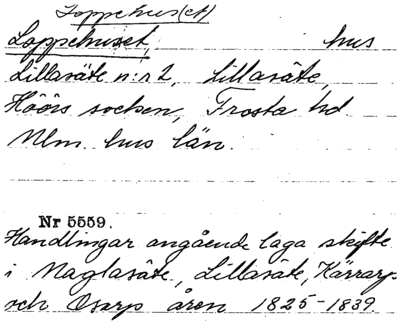 Loppehus(et)
Loppehuset, hus
Lillasäte n:r 2, Lillasäte,
Höörs socken, Frosta hd.
Mlm. hus län.
Nr 5559.
Handlingar angående laga skifte
i Maglasäte, Lillasäte, Kärrarp
och Osarp åren 1825-1839.